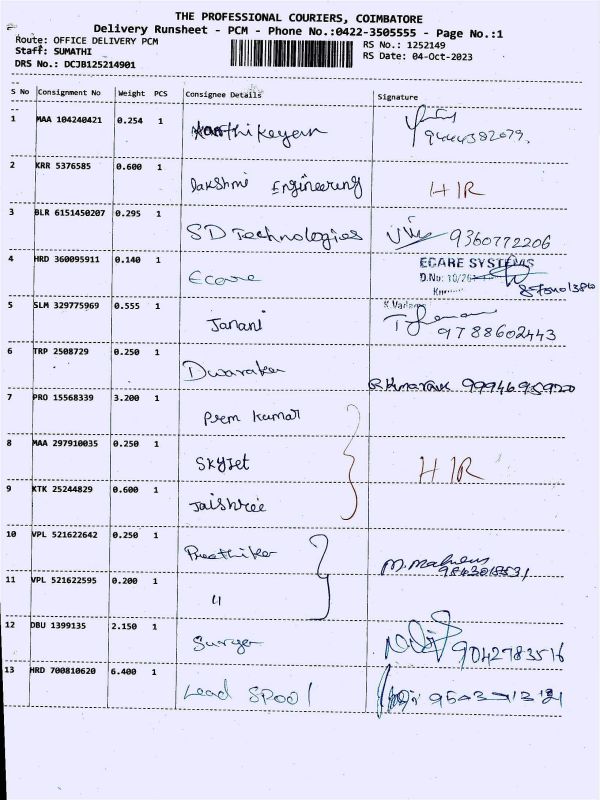 THE PROFESSIONAL COURIERS, COIMBATORE
Delivery Runsheet - PCM - Phone No.:0422-3505555 - Page No.:1
Route: OFFICE DELIVERY PCM
Staff: SUMATHI
DRS No.: DCJB125214901
RS No.: 1252149
RS Date: 04-Oct-2023
S No Consignment No Weight PCS Consignee Details Signature
1 MAA 104240421 0.254 1 Karthikeyan 9444382079.
2 KRR 5376585 0.600 1 Lakshmi Engineering HIR
3 BLR 6151450207 0.295 1 SD Technologies 9360772206
4 HRD 360095911 0.140 1 Ecare ECARE SYSTEMS
D.No: 10/20
5 SLM 329775969 0.555 1 Janani 9788602443
6 TRP 2508729 0.250 1 Dwaraka 9994695920
7 PRO 15568339 3.200 1 Prem Kumar
8 MAA 297910035 0.250 1 Skyjet HIR
9 KTK 25244829 0.600 1 Jaishree
10 VPL 521622642 0.250 1 Preethika
11 VPL 521622595 0.200 1 "
12 DBU 1399135 2.150 1 Surya 9042783516
13 HRD 700810620 6.400 1 Lead Spool